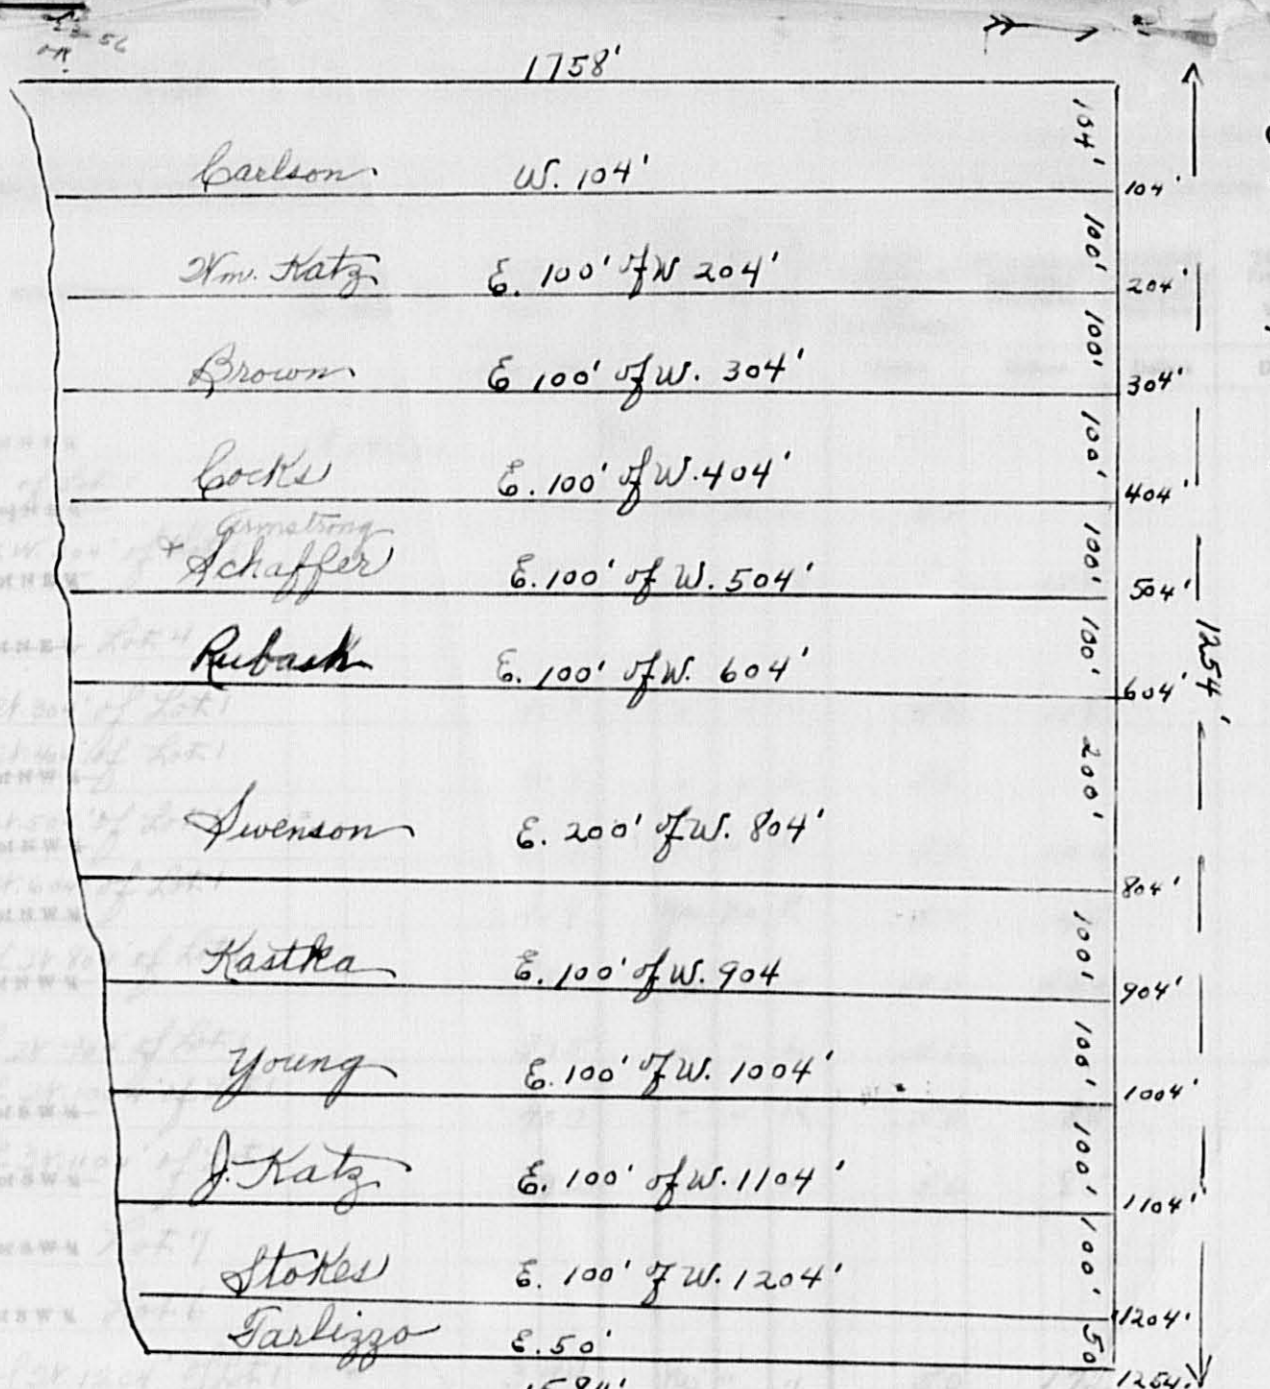 1758'
104'
Carlson W. 104'
104'
100'
Wm. Katz E. 100' of W 204'
204'
100'
Brown E 100' of W. 304'
304'
100'
Cocks E. 100' of W. 404'
404'
Armstrong
100'
+ Schaffer E. 100' of W. 504'
504'
100'
1254'
Rubash E. 100' of W. 604'
604'
200'
Swenson E. 200' of W. 804'
804'
100'
Kastka E. 100' of W. 904
904'
100'
Young E. 100' of W. 1004'
1004'
100'
J. Katz E. 100' of W. 1104'
1104'
100'
Stokes E. 100' of W. 1204'
1204'
50
Tarlizzo E. 50'
1254'
1584'